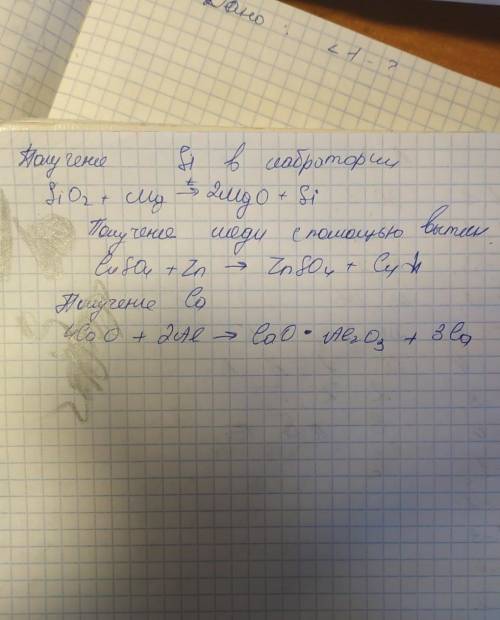 Дано :
< 1 - ?
Получение Si в лабротории
SiO2 + Mg t→ 2MgO + Si
Получение меди с помощью вытес.
CuSO4 + Zn → ZnSO4 + Cu↓
Получение Ca
4CaO + 2Al → CaO · Al2O3 + 3Ca